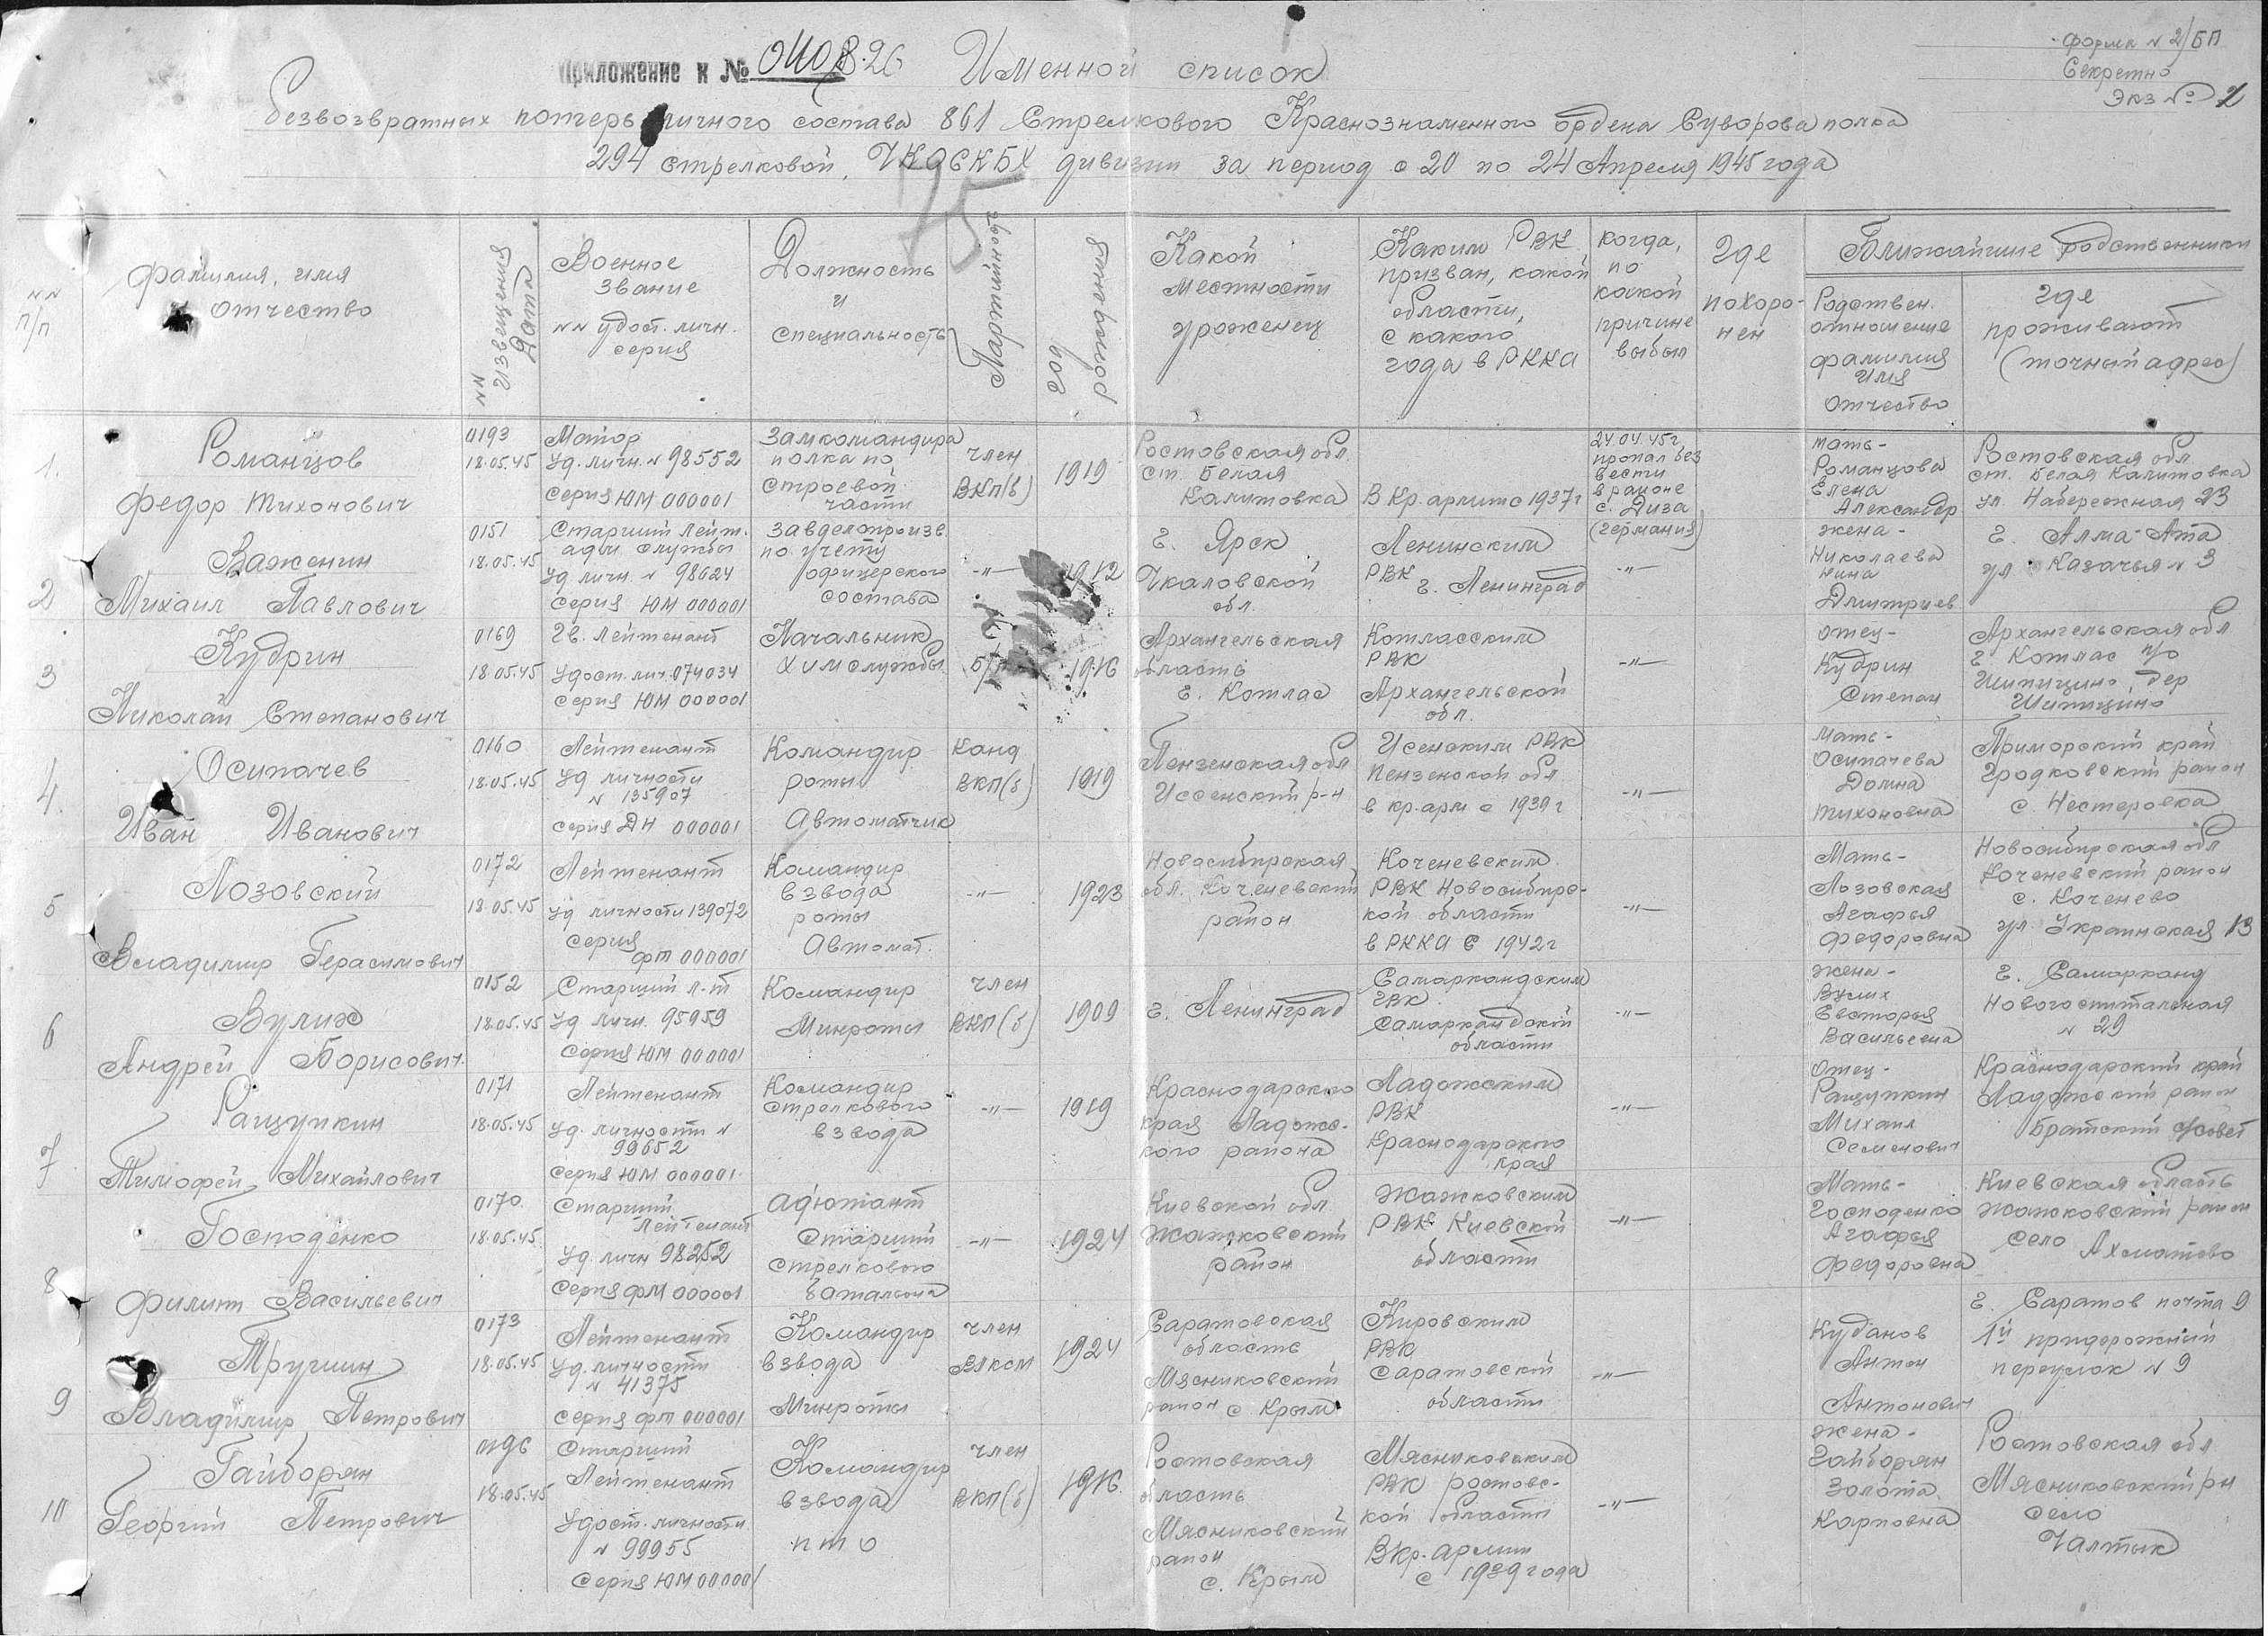 Форма № 2/БП
Секретно
Экз № 2
Приложение к №
Именной список
безвозвратных потерь личного состава 861 Стрелкового Краснознаменного ордена Суворова полка
294 стрелковой, ЧКОСКБХ дивизии за период с 20 по 24 Апреля 1945 года
75
№№ п/п
фамилия, имя
отчество
№№ извещения
Дата
Военное
Звание
№№ удост. личн.
серия
Должность
и
специальность
Партийность
Год рождения
Какой
местности
уроженец
Каким РВК
призван, какой
области,
с какого
года в РККА
когда,
по
какой
причине
выбыл
где
похоро-
нен
Ближайшие родственники
Родствен.
отношение
фамилия
имя
отчество
где
проживают
(точный адрес)
1.
Романцов
Федор Тихонович
0193
18.05.45
Майор
Уд. личн. № 98552
Серия ЮМ 000001
Замкомандира
полка по
строевой
части
член
ВКП(б)
1919
Ростовская обл.
ст. Белая
Калитовка
В Кр. армии с 1937 г
24.04.45 г.
пропал без
вести
в районе
с. Диза
(германия)
мать-
Романцова
Елена
Александр
Ростовская обл
ст. Белая Калитовка
ул. Набережная 23
2
Важенин
Михаил Павлович
0151
18.05.45
Старший Лейт.
адм. службы
Уд личн. № 98624
Серия ЮМ 000001
Завделопроизв.
по учету
офицерского
состава
-"-
1912
г. Ярск
Чкаловской
обл.
Ленинским
РВК
г. Ленинград
-"-
жена-
Николаева
Нина
Дмитриев
г. Алма-Ата
ул. Казачья № 3
3
Кудрин
Николай Степанович
0169
18.05.45
Гв. Лейтенант
Удост. лич. 074034
Серия ЮМ 000001
Начальник
химслужбы
б/п
1916
Архангельская
область
г. Котлас
Котласским
РВК
Архангельской
обл.
-"-
отец-
Кудрин
Степан
Архангельская обл
г Котлас п/о
Шипицино, дер
Шипицино
4.
Осипачев
Иван Иванович
0160
18.05.45
Лейтенант
Уд личности
№ 135907
серия ДН 000001
Командир
роты
Автоматчик
Канд
ВКП(б)
1919
Пензенская обл
Иссенский р-н
Исенским РВК
Пензенской обл
в кр. арм с 1939 г
-"-
мать-
Осипачева
Домна
Тихоновна
Приморский край
Гродковский район
с. Нестеровка
5
Лозовский
Владимир Герасимович
0172
18.05.45
Лейтенант
Уд личности 139072
серия
ФТ 000001
Командир
взвода
роты
Автомат.
-"-
1923
Новосибирская
обл. Коченевский
район
Коченевским
РВК Новосибирс-
кой области
в РККА с 1942 г
-"-
Мать-
Лозовская
Агафья
Федоровна
Новосибирская обл
Коченевский район
с. Коченево
ул. Украинская 13
6
Вулих
Андрей Борисович
0152
18.05.45
Старший л-т
Уд личн. 95959
Серия ЮМ 000001
Командир
Минроты
член
ВКП(б)
1909
г. Ленинград
Самаркандским
ГВК
Самаркандской
области
-"-
жена-
Вулих
Евстория
Васильевна
г. Самарканд
Новогоспитальная
№ 29
7
Ращупкин
Тимофей Михайлович
0171
18.05.45
Лейтенант
Уд. личности №
99652
Серия ЮМ 000001
Командир
стрелкового
взвода
-"-
1919
Краснодарского
края Ладожс-
кого района
Ладожским
РВК
Краснодарского
края
-"-
Отец-
Ращупкин
Михаил
Семенович
Краснодарский край
Ладожский район
Братский с/совет
8
Господенко
Филипп Васильевич
0170
18.05.45
Старший
Лейтенант
Уд. личн 98252
Серия ФМ 000001
Адютант
Старший
стрелкового
батальона
-"-
1924
Киевской обл.
Жашковский
район
Жашковским
РВК Киевской
области
-"-
Мать-
Господенко
Агафья
Федоровна
Киевская область
Жашковский район
село Ахматово
9
Трушин
Владимир Петрович
0173
18.05.45
Лейтенант
Уд. личности
№ 41375
серия ФТ 000001
Командир
взвода
Минроты
член
ВЛКСМ
1924
Саратовская
область
Мясниковский
район с Крым
Кировским
РВК
Саратовской
области
-"-
Кубанов
Антон
Антонович
г. Саратов почта 9
1й придорожный
переулок № 9
10
Гайборян
Георгий Петрович
0196
18.05.45
Старший
Лейтенант
Удост. личности
№ 99955
Серия ЮМ 000001
Командир
взвода
ПТО
член
ВКП(б)
1916
Ростовская
область
Мясниковский
район
с. Крым
Мясниковским
РВК ростовс-
кой области
В Кр. армии
с 1939 года
-"-
жена-
Гайборян
Золота
Карповна
Ростовская обл
Мясниковский рн
село
Чалтык